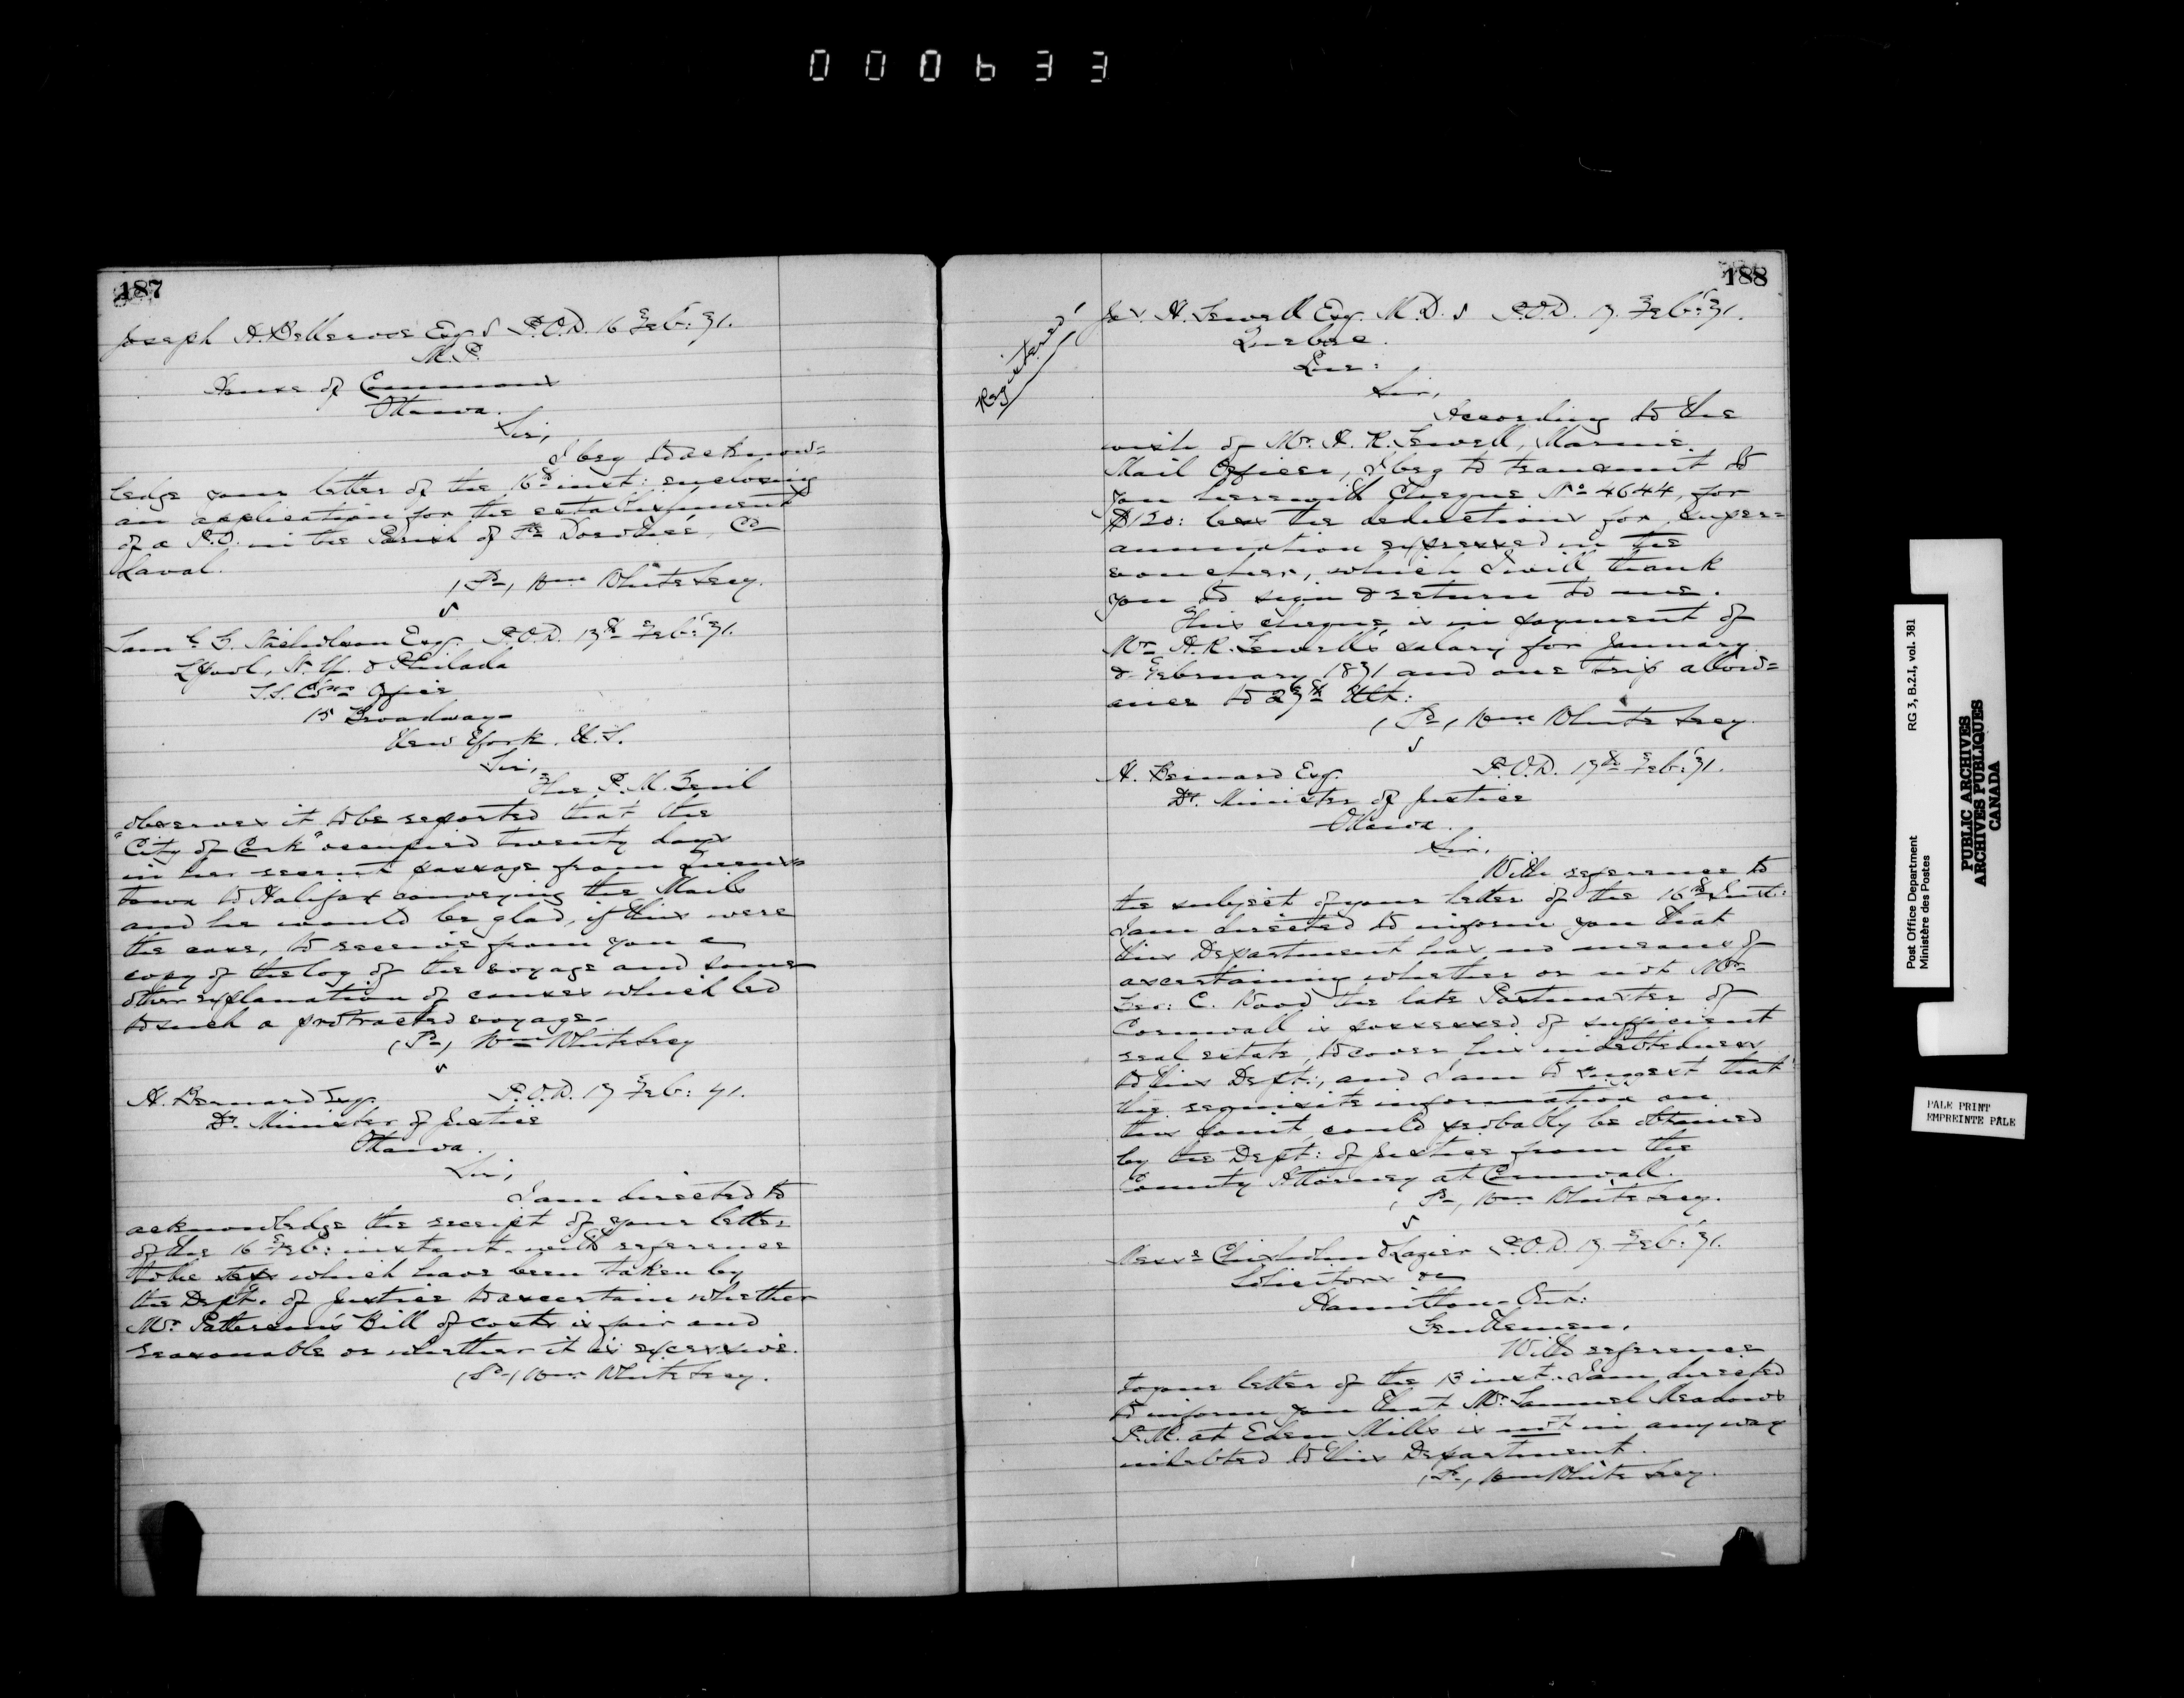 000633
187
Joseph H. Bellerose Esq. P.O.D. 16 Feb: 71.
M.P.
House of Commons
Ottawa.
Sir,
I beg to acknow=
ledge your letter of the 16th inst: enclosing
an application for the establishment
of a P.O. in the Parish of Ste Dorothée, Co
Laval.
(Sd) Wm White Secy.
Saml G. Nicholson Esq. P.O.D. 17th Feb: 71.
L'pool, N.Y. & Philada
S.S. Co's Office
15 Broadway
New York. U.S.
Sir,
The P.M. Genl
observes it to be reported that the
"City of Cork" occupied twenty days
in her recent passage from Queens
town to Halifax conveying the Mails
and he would be glad, if this were
the case, to receive from you a
copy of the log of the voyage and some
other explanation of causes which led
to such a protracted voyage.
(Sd) Wm White Secy
H. Bernard Esq. P.O.D. 17 Feb: 71.
Dy. Minister of Justice
Ottawa.
Sir,
I am directed to
acknowledge the receipt of your letter
of the 16 Feb: instant with reference
to the steps which have been taken by
the Dept. of Justice to ascertain whether
Mr. Patterson's Bill of costs is fair and
reasonable or whether it is excessive.
(Sd) Wm White Secy.
188
Registered
Jas. A. Sewell Esq. M.D. P.O.D. 17. Feb: 71.
Quebec.
Que:
Sir,
According to the
wish of Mr. H. R. Sewell, Marine
Mail Officer, I beg to transmit to
you herewith Cheque No 4644, for
$120: less the deductions for super=
annuation expressed in the
voucher, which I will thank
you to sign & return to me.
This cheque is in payment of
Mr. H. R. Sewell's salary for January
& February 1871 and one trip allow=
ance to 27th Ult:
(Sd) Wm White Secy.
H. Bernard Esq. P.O.D. 17th Feb: 71.
Dy. Minister of Justice
Ottawa.
Sir,
With reference to
the subject of your letter of the 16th Inst:
I am directed to inform you that
this Department has no means of
ascertaining whether or not Mr.
Geo: C. Wood the late Postmaster of
Cornwall is possessed of sufficient
real estate, to cover his indebtedness
to this Dept:, and I am to suggest that
the requisite information on
this point, could probably be obtained
by the Dept: of Justice from the
County Attorney at Cornwall.
(Sd) Wm White Secy.
Messrs Chisholm & Lazier P.O.D. 17. Feb: 71.
Solicitors &c
Hamilton - Ont:
Gentlemen,
With reference
to your letter of the 13 inst. I am directed
to inform you that Mr. Samuel Meadows
P.M. at Eden Mills is not in any way
indebted to this Department.
(Sd) Wm White Secy.
Post Office Department RG 3, B.2.1, vol. 381
Ministère des Postes
PUBLIC ARCHIVES
ARCHIVES PUBLIQUES
CANADA
PALE PRINT
EMPREINTE PALE